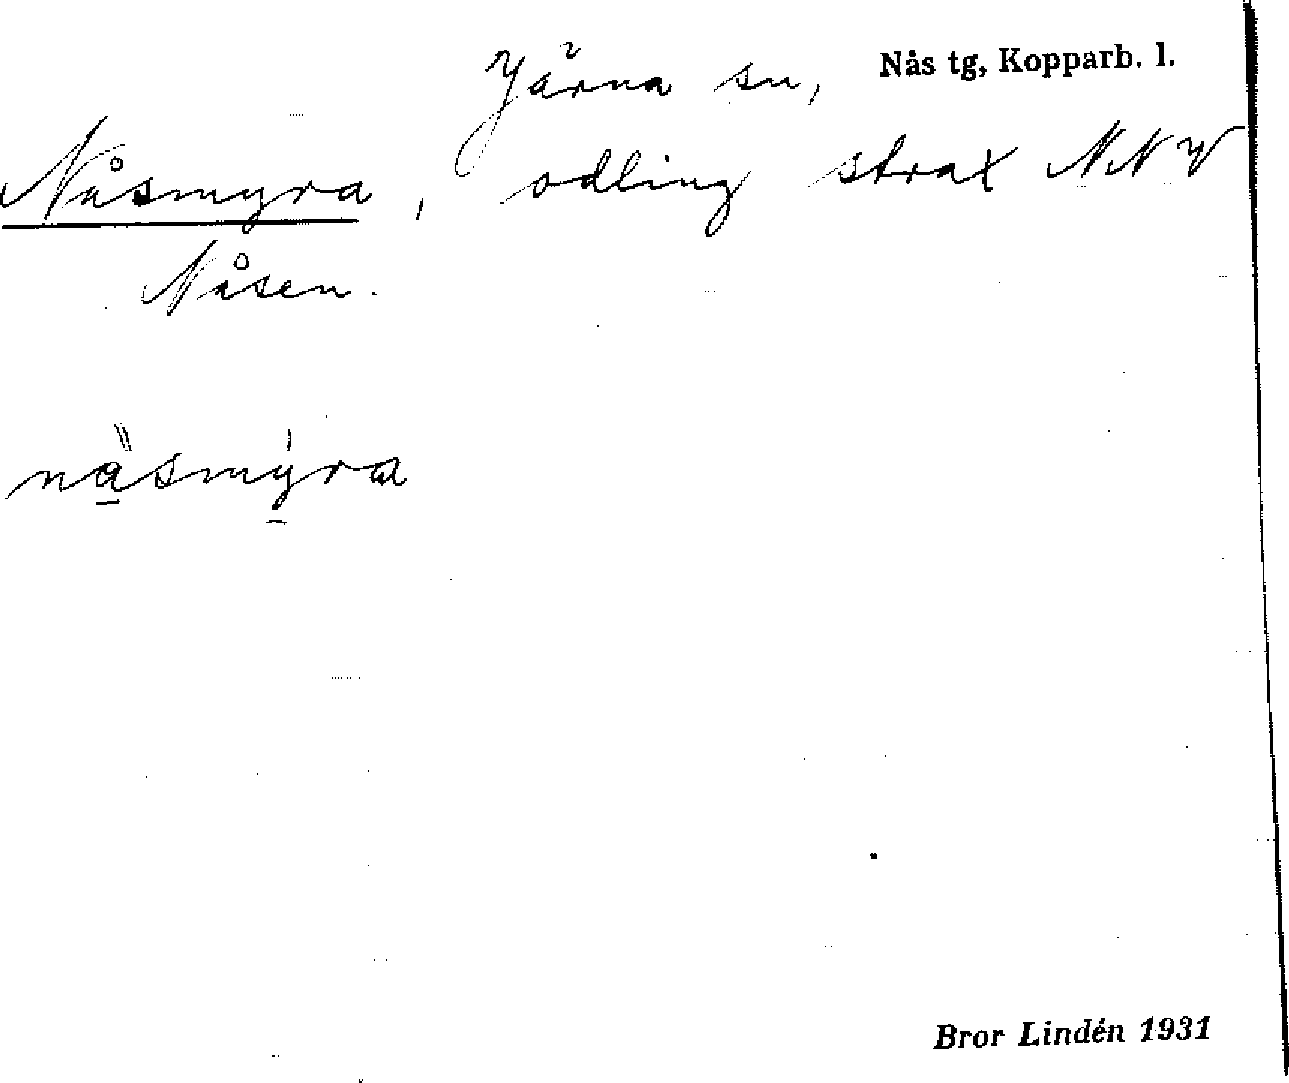 Järna sn, Nås tg, Kopparb. l.
Nåsmyra, odling strax NNV
Nåsen.
näsmýra
Bror Lindén 1931